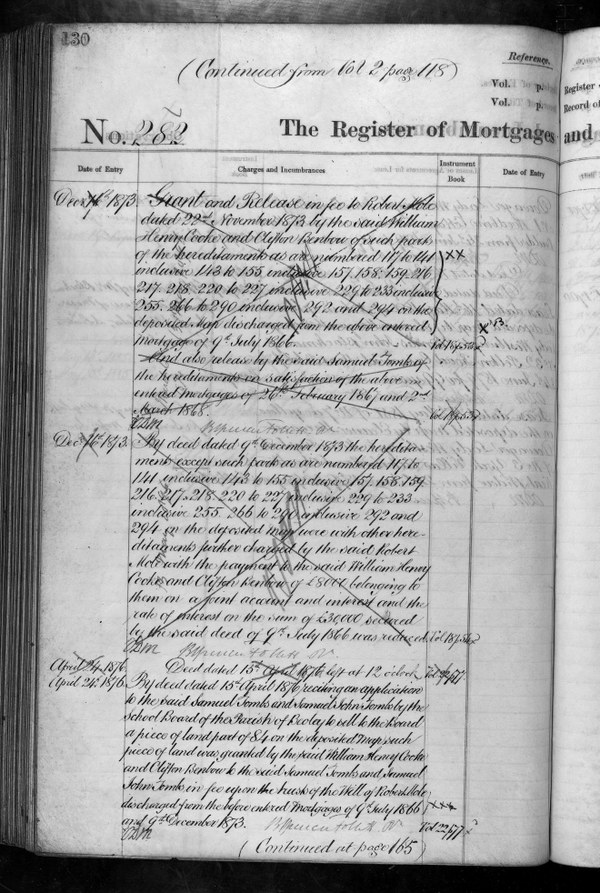 130
(Continued from Vol 2 page 118)
Reference.
Vol. p.
Vol. p.
No. 282
The Register of Mortgages and
Register
Record of
Date of Entry
Charges and Incumbrances
Instrument Book
Date of Entry
Decr 16th 1873. Grant and Release in fee to Robert Mole
dated 22nd November 1873 by the said William
Henry Cooke and Clifton Benbow of such part
of the hereditaments as are numbered 117 to 141
inclusive 143 to 155 inclusive 157. 158. 159. 216
217. 218. 220 to 227 inclusive 229 to 233 inclusive
255. 266 to 290 inclusive 292 and 294 on the
deposited Map discharged from the above entered
mortgage of 9th July 1866.
And also release by the said Samuel Tomb of
the hereditaments in satisfaction of the above in
entered mortgages of 26th February 1867 and 2nd
March 1868.
Dec 16th 1873. By deed dated 9th December 1873 the heredita-
ments except such parts as are numbered 117 to
141 inclusive 143 to 155 inclusive 157. 158. 159.
216. 217. 218. 220 to 227 inclusive 229 to 233
inclusive 255. 266 to 290 inclusive 292 and
294 on the deposited map were with other here-
ditaments further charged by the said Robert
Mole with the payment to the said William Henry
Cooke and Clifton Benbow of £8000 belonging to
them on a joint account and interest and the
rate of interest on the sum of £30000 secured
by the said deed of 9th July 1866 was reduced.
April 24. 1876. Deed dated 15th April 1876 left at 12 o'clock
April 24th 1876. By deed dated 15th April 1876 reciting an application
to the said Samuel Tomb and Samuel John Tomb by the
School Board of the Parish of Beoley to sell to the Board
a piece of land part of 84 on the deposited Map such
piece of land was granted by the said William Henry Cooke
and Clifton Benbow to the said Samuel Tomb and Samuel
John Tomb in fee upon the trusts of the Will of Robert Mole
discharged from the before entered Mortgages of 9th July 1866
and 9th December 1873.
(Continued at page 165)